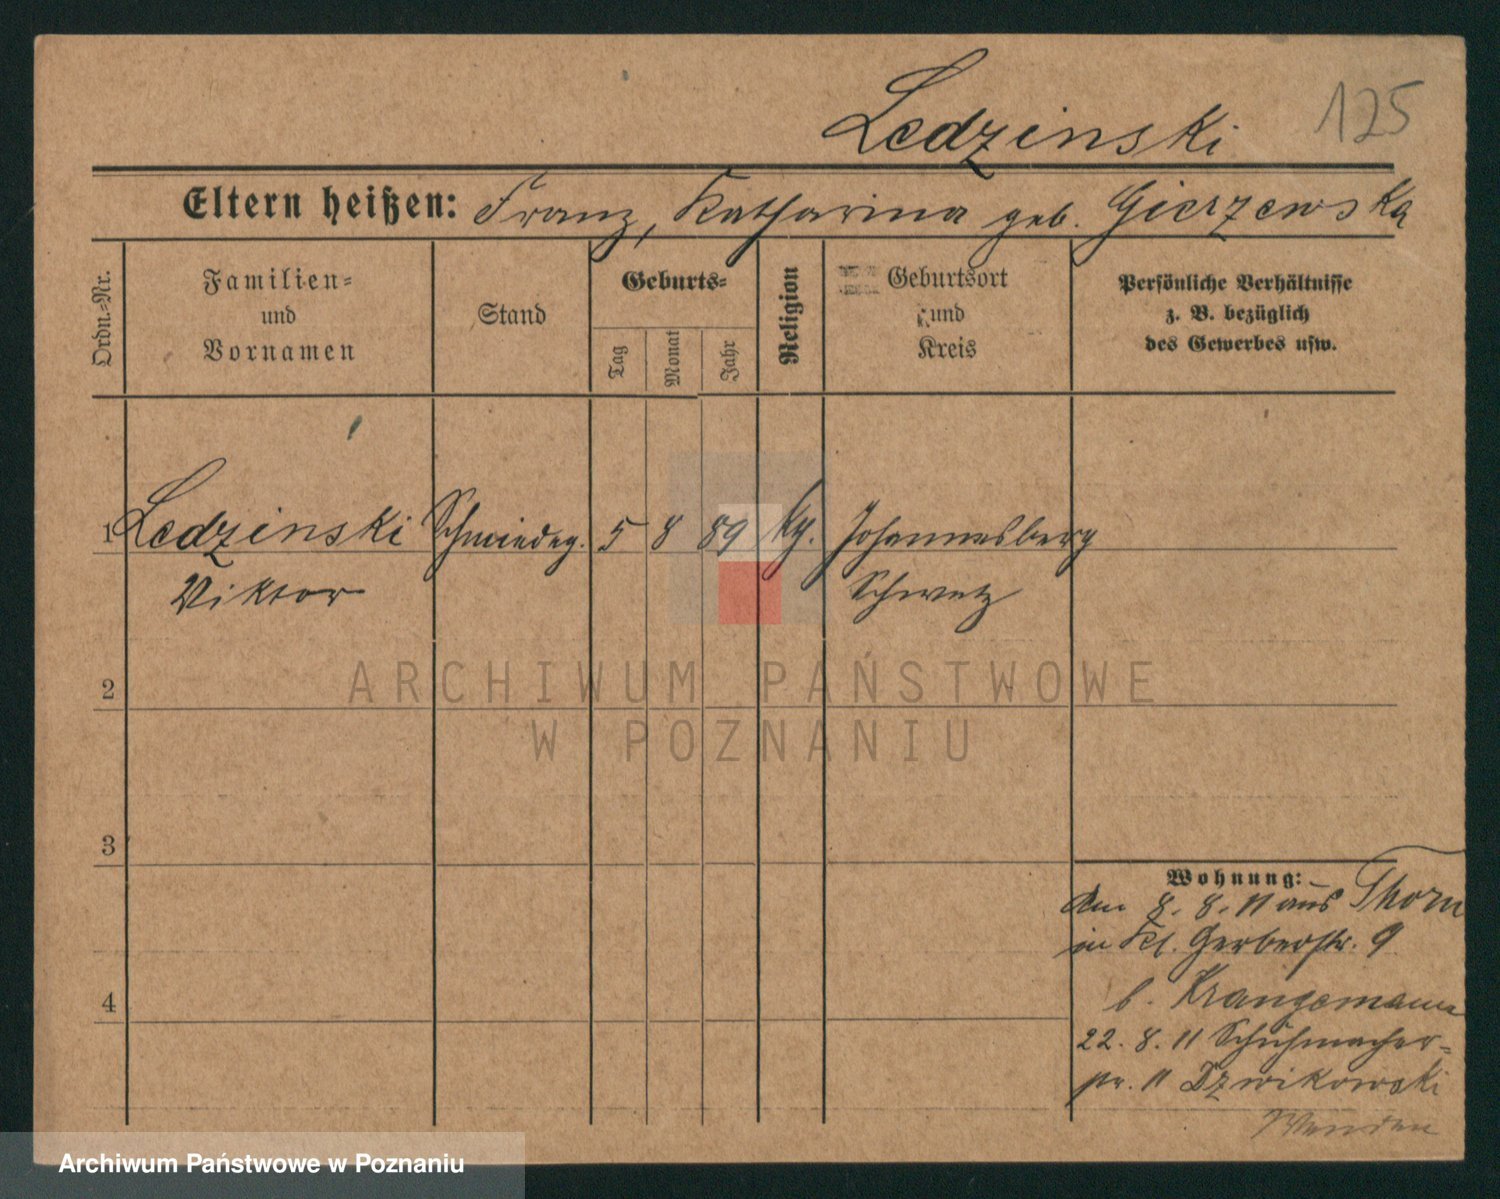 Ledzinski 125
Eltern heißen: Franz, Katharina geb. Gierzewska
Ordn.=Nr.
Familien=
und
Vornamen
Stand
Geburts=
Tag
Monat
Jahr
Religion
Geburtsort
und
Kreis
Persönliche Verhältnisse
z. B. bezüglich
des Gewerbes usw.
1 Ledzinski Schmiedeg. 5 8 89 kg. Johannesberg
Viktor Schwetz
ARCHIWUM PAŃSTWOWE
W POZNANIU
2
3
4
Wohnung:
Am 8. 8. 11 aus Thorn
in Kl. Gerberstr. 9
b. Krangemann
22. 8. 11 Schuhmacher=
str. 11 Dzwikowski
Wenden
Archiwum Państwowe w Poznaniu